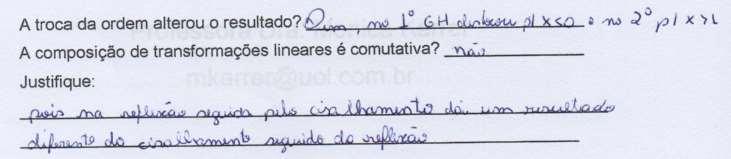 A troca da ordem alterou o resultado? Sim, no 1º GH deslocou p/ x<0 e no 2º p/ x>1
A composição de transformações lineares é comutativa? não
Justifique:
mkarrer@uol.com.br
pois na reflexão seguida pelo cisalhamento dá um resultado
diferente do cisalhamento seguido da reflexão